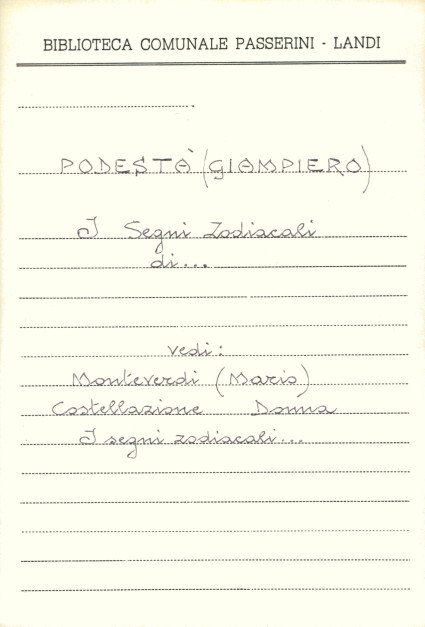 BIBLIOTECA COMUNALE PASSERINI - LANDI
PODESTÀ (GIAMPIERO)
I Segni Zodiacali
di...
vedi:
Monteverdi (Mario)
Costellazione Donna
I segni zodiacali...